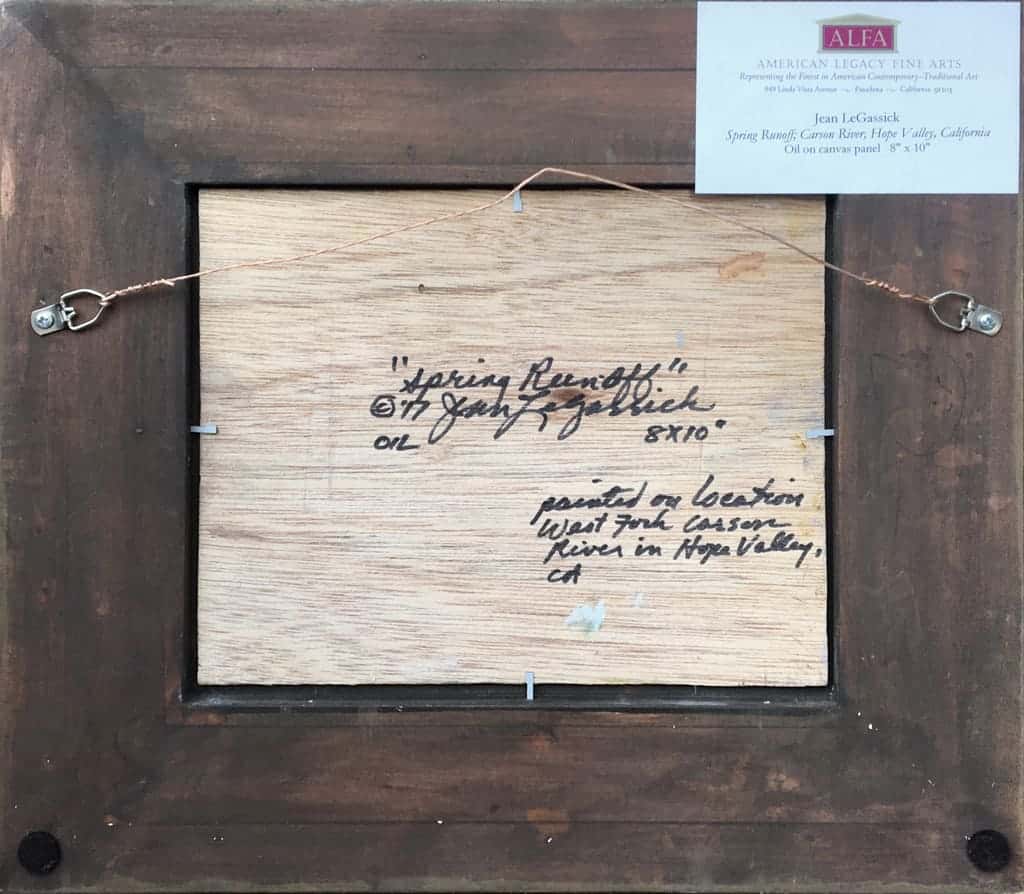 ALFA
AMERICAN LEGACY FINE ARTS
Representing the Finest in American Contemporary-Traditional Art
949 Linda Vista Avenue ~ Pasadena ~ California 91103
Jean LeGassick
Spring Runoff; Carson River, Hope Valley, California
Oil on canvas panel 8" x 10"
"Spring Runoff"
© '97 Jean LeGassick
OIL 8X10"
painted on location
West Fork Carson
River in Hope Valley,
CA